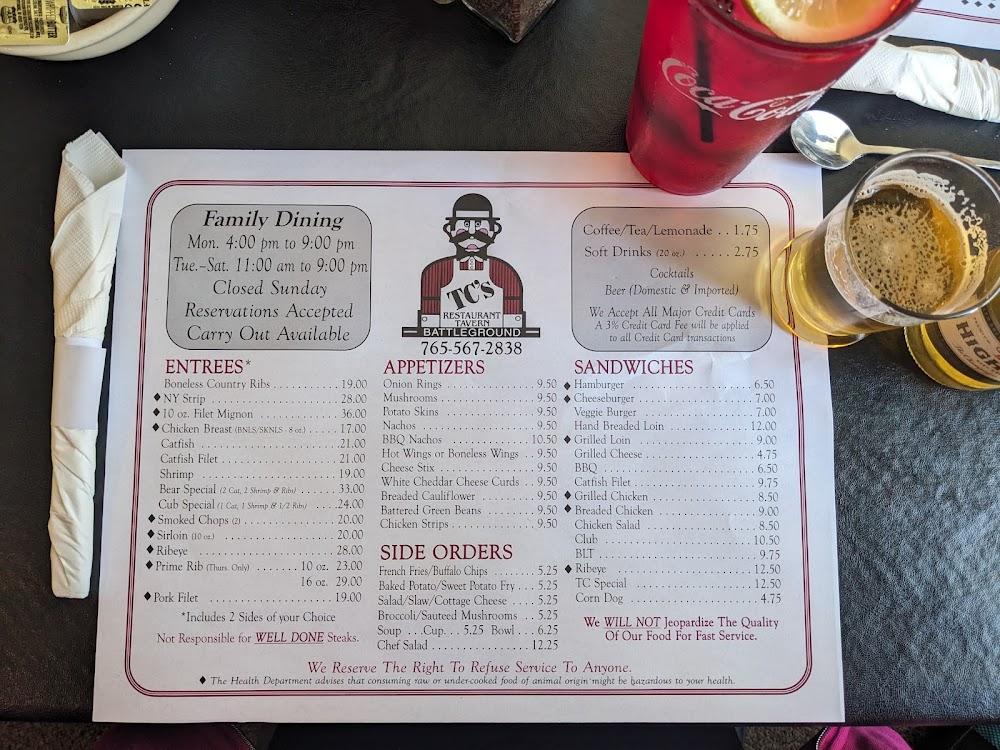 BUTTER
Coca-Cola
Family Dining
Mon. 4:00 pm to 9:00 pm
Tue.-Sat. 11:00 am to 9:00 pm
Closed Sunday
Reservations Accepted
Carry Out Available
TC's
RESTAURANT
TAVERN
BATTLEGROUND
765-567-2838
Coffee/Tea/Lemonade . . 1.75
Soft Drinks (20 oz.) . . . . . 2.75
Cocktails
Beer (Domestic & Imported)
We Accept All Major Credit Cards
A 3% Credit Card Fee will be applied
to all Credit Card transactions
HIGH
ENTREES*
Boneless Country Ribs . . . . . . . . . . 19.00
♦ NY Strip . . . . . . . . . . 28.00
♦ 10 oz. Filet Mignon . . . . . . . . . . 36.00
♦ Chicken Breast (BNLS/SKNLS - 8 oz.) . . . . . . 17.00
Catfish . . . . . . . . . . 21.00
Catfish Filet . . . . . . . . . . 21.00
Shrimp . . . . . . . . . . 19.00
Bear Special (2 Cat, 2 Shrimp & Rib) . . . . . . 33.00
Cub Special (1 Cat, 1 Shrimp & 1/2 Rib) . . . . 24.00
♦ Smoked Chops (2) . . . . . . . . . . 20.00
♦ Sirloin (10 oz.) . . . . . . . . . . 20.00
♦ Ribeye . . . . . . . . . . 28.00
♦ Prime Rib (Thurs. Only) . . . . . . . 10 oz. 23.00
16 oz. 29.00
♦ Pork Filet . . . . . . . . . . 19.00
*Includes 2 Sides of your Choice
Not Responsible for WELL DONE Steaks.
APPETIZERS
Onion Rings . . . . . . . . . . 9.50
Mushrooms . . . . . . . . . . 9.50
Potato Skins . . . . . . . . . . 9.50
Nachos . . . . . . . . . . 9.50
BBQ Nachos . . . . . . . . . . 10.50
Hot Wings or Boneless Wings . . 9.50
Cheese Stix . . . . . . . . . . 9.50
White Cheddar Cheese Curds . . 9.50
Breaded Cauliflower . . . . . . . . . . 9.50
Battered Green Beans . . . . . . . . . 9.50
Chicken Strips . . . . . . . . . . 9.50
SIDE ORDERS
French Fries/Buffalo Chips . . . . . . . . 5.25
Baked Potato/Sweet Potato Fry . . . . 5.25
Salad/Slaw/Cottage Cheese . . . . 5.25
Broccoli/Sauteed Mushrooms . . 5.25
Soup . . . Cup. . . 5.25 Bowl . . . 6.25
Chef Salad . . . . . . . . . . 12.25
SANDWICHES
♦ Hamburger . . . . . . . . . . 6.50
♦ Cheeseburger . . . . . . . . . . 7.00
Veggie Burger . . . . . . . . . . 7.00
Hand Breaded Loin . . . . . . . . . . 12.00
♦ Grilled Loin . . . . . . . . . . 9.00
Grilled Cheese . . . . . . . . . . 4.75
BBQ . . . . . . . . . . 6.50
Catfish Filet . . . . . . . . . . 9.75
♦ Grilled Chicken . . . . . . . . . . 8.50
♦ Breaded Chicken . . . . . . . . . . 9.00
Chicken Salad . . . . . . . . . . 8.50
Club . . . . . . . . . . 10.50
BLT . . . . . . . . . . 9.75
♦ Ribeye . . . . . . . . . . 12.50
TC Special . . . . . . . . . . 12.50
Corn Dog . . . . . . . . . . 4.75
We WILL NOT Jeopardize The Quality
Of Our Food For Fast Service.
We Reserve The Right To Refuse Service To Anyone.
♦ The Health Department advises that consuming raw or under-cooked food of animal origin might be hazardous to your health.